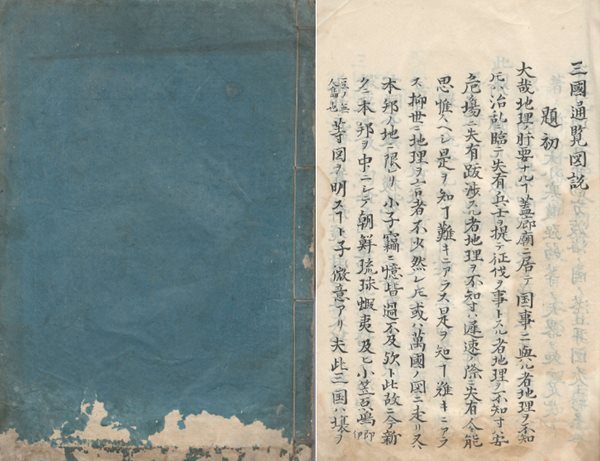 三國通覧図説
題初
大哉地理ノ肝要ナルヿ蓋廊廟ニ居テ国事ニ與ル者地理ヲ不知
片ハ治乱ニ臨テ失有兵士ヲ提テ征伐ヲ事トスル者地理ヲ不知寸ハ安
危ノ場ニ失有跋渉スル者地理ヲ不知寸ハ遅速ノ際ニ失有人々能
思惟スヘシ是ヲ知ヿ難キニアラス是ヲ知ヿ難キニアラ
ス抑世ニ地理ヲ言者不少然レ𪜈或ハ萬國ノ図ニ走リ又ハ
本邦ノ地ニ限レリ小子竊ニ憶皆過不及欤ト此故ニ今新
タニ本邦ヲ中ニシテ朝鮮琉球蝦夷及ヒ小笠原嶋
等ノ図ヲ明スヿ子微意アリ夫此三国ハ壌ヲ